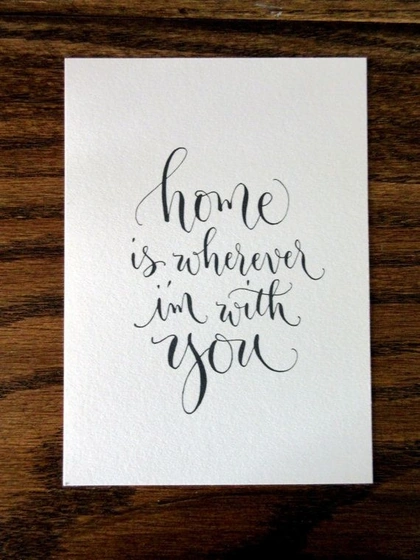 home
is wherever
i'm with
you